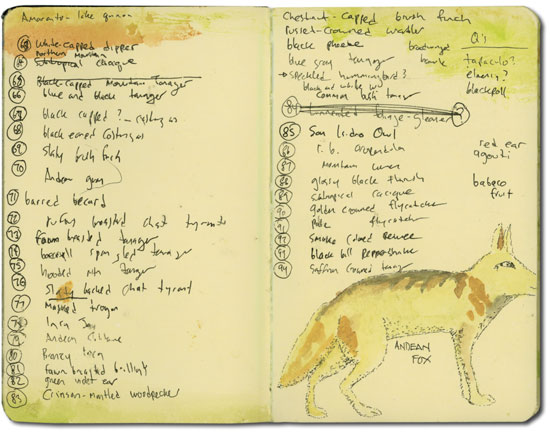 Amaranto - like quinoa
63 White-capped dipper
Northern Mountain
64 Subtropical cacique
65 Black-capped Mountain Tanager
66 blue and black tanager
67 black capped ?
68 black eared
69 Slaty brush finch
70 Andean guan
71 barred becard
72 rufous breasted chat tyrant
73 Fawn breasted tanager
74 tanager
75 hooded Mtn tanager
76 Slaty backed chat tyrant
77 Masked trogon
78 Inca Jay
79 Andean
80 Bronzy Inca
81 fawn breasted brilliant
82 green violet ear
83 Crimson-mantled woodpecker
Chestnut-capped brush finch
russet-crowned warbler
black phoebe
blue gray tanager
speckled hummingbird?
black and white
common bush tanager
84
85 San Isidro Owl
86 r.b.
87 Mountain wren
88 glossy black thrush
89 subtropical cacique
90 golden crowned flycatcher
flycatcher
92 smoke colored pewee
93 black bill peppershrike
94 saffron crowned tanager
Q's
tapaculo?
elaenia?
blackpoll
red ear
agouti
babaco
fruit
ANDEAN
FOX